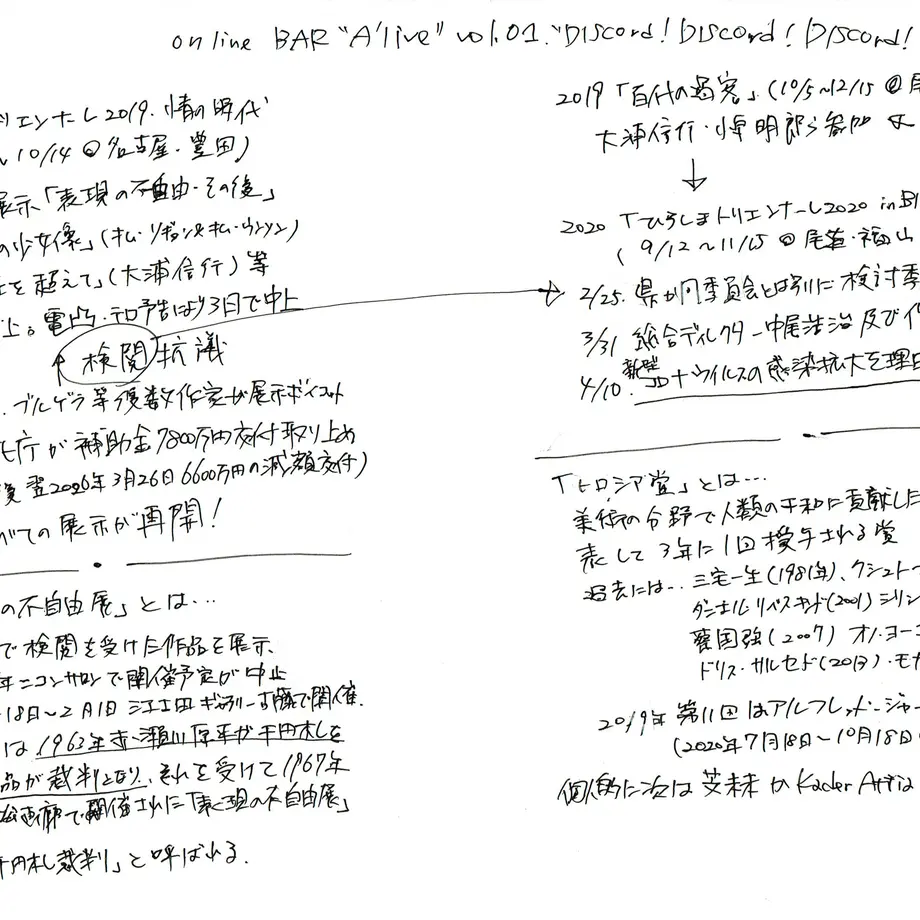 on line BAR "A'live" vol.01. "DIScord! DIScord! DIScord!
リエンナーレ2019. 情の時代
10/14 @ 名古屋・豊田)
展示「表現の不自由・その後」
の少女像」(キム・ソギョン&キム・ウンソン)
を超えて」(大浦信行) 等
止。電凸・テロ予告により3日で中止
↑検閲 抗議
ブルゲラ等複数作家が展示ボイコット
庁が補助金7800万円交付取り止め
後 翌2020年3月26日6600万円の減額交付)
べての展示が再開!
の不自由展」とは…
で検閲を受けた作品を展示、
年ニコンサロンで開催予定が中止
18日〜2月1日 江古田ギャラリー古藤で開催.
は1963年赤瀬川原平が千円札を
品が裁判となり、それを受けて1967年
画廊で開催された「表現の不自由展」
千円札裁判」と呼ばれる.
2019「百代の過客」(10/5〜12/15 @ 尾
大浦信行・小泉明郎ら参加
↓
2020「ひろしまトリエンナーレ2020 in BI
(9/12〜11/15 @ 尾道・福山
2/25. 県が同委員会とは別に検討委
3/31 総合ディレクター中尾浩治 及び
4/10. 新型コロナウイルスの感染拡大を理由
「ヒロシマ賞」とは…
美術の分野で人類の平和に貢献した
表して3年に1回授与される賞
過去には… 三宅一生(1981年)、クシュトフ
ダニエル・リベスキンド(2001) シリン
蔡国強(2007) オノ・ヨーコ
ドリス・サルセド(2013)・モナ
2019年 第11回はアルフレッド・ジャー
(2020年7月18日〜10月18日
個人的に次は 艾未未 か Kader Attia